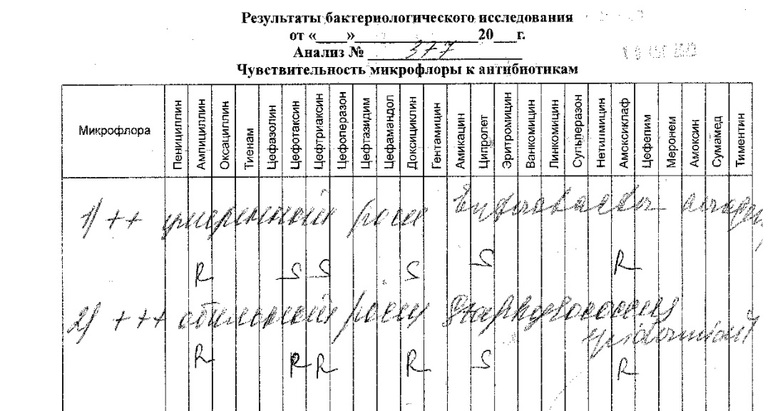 Результаты бактериологического исследования
от «____»____________________20___г.
Анализ № 377
Чувствительность микрофлоры к антибиотикам
Микрофлора Пенициллин Ампициллин Оксациллин Тиенам Цефазолин Цефотаксин Цефтриаксин Цефоперазон Цефтазидим Цефамандол Доксициклин Гентамицин Амикацин Ципролет Эритромицин Ванкомицин Линкомицин Сульперазон Нетилмицин Амоксиклаф Цефепим Меронем Амоксин Сумамед Тиментин
1) ++ умеренный рост Enterobacter
R S S S S R
2) +++ обильный рост Staphylococcus
epidermidis
R R R R S R